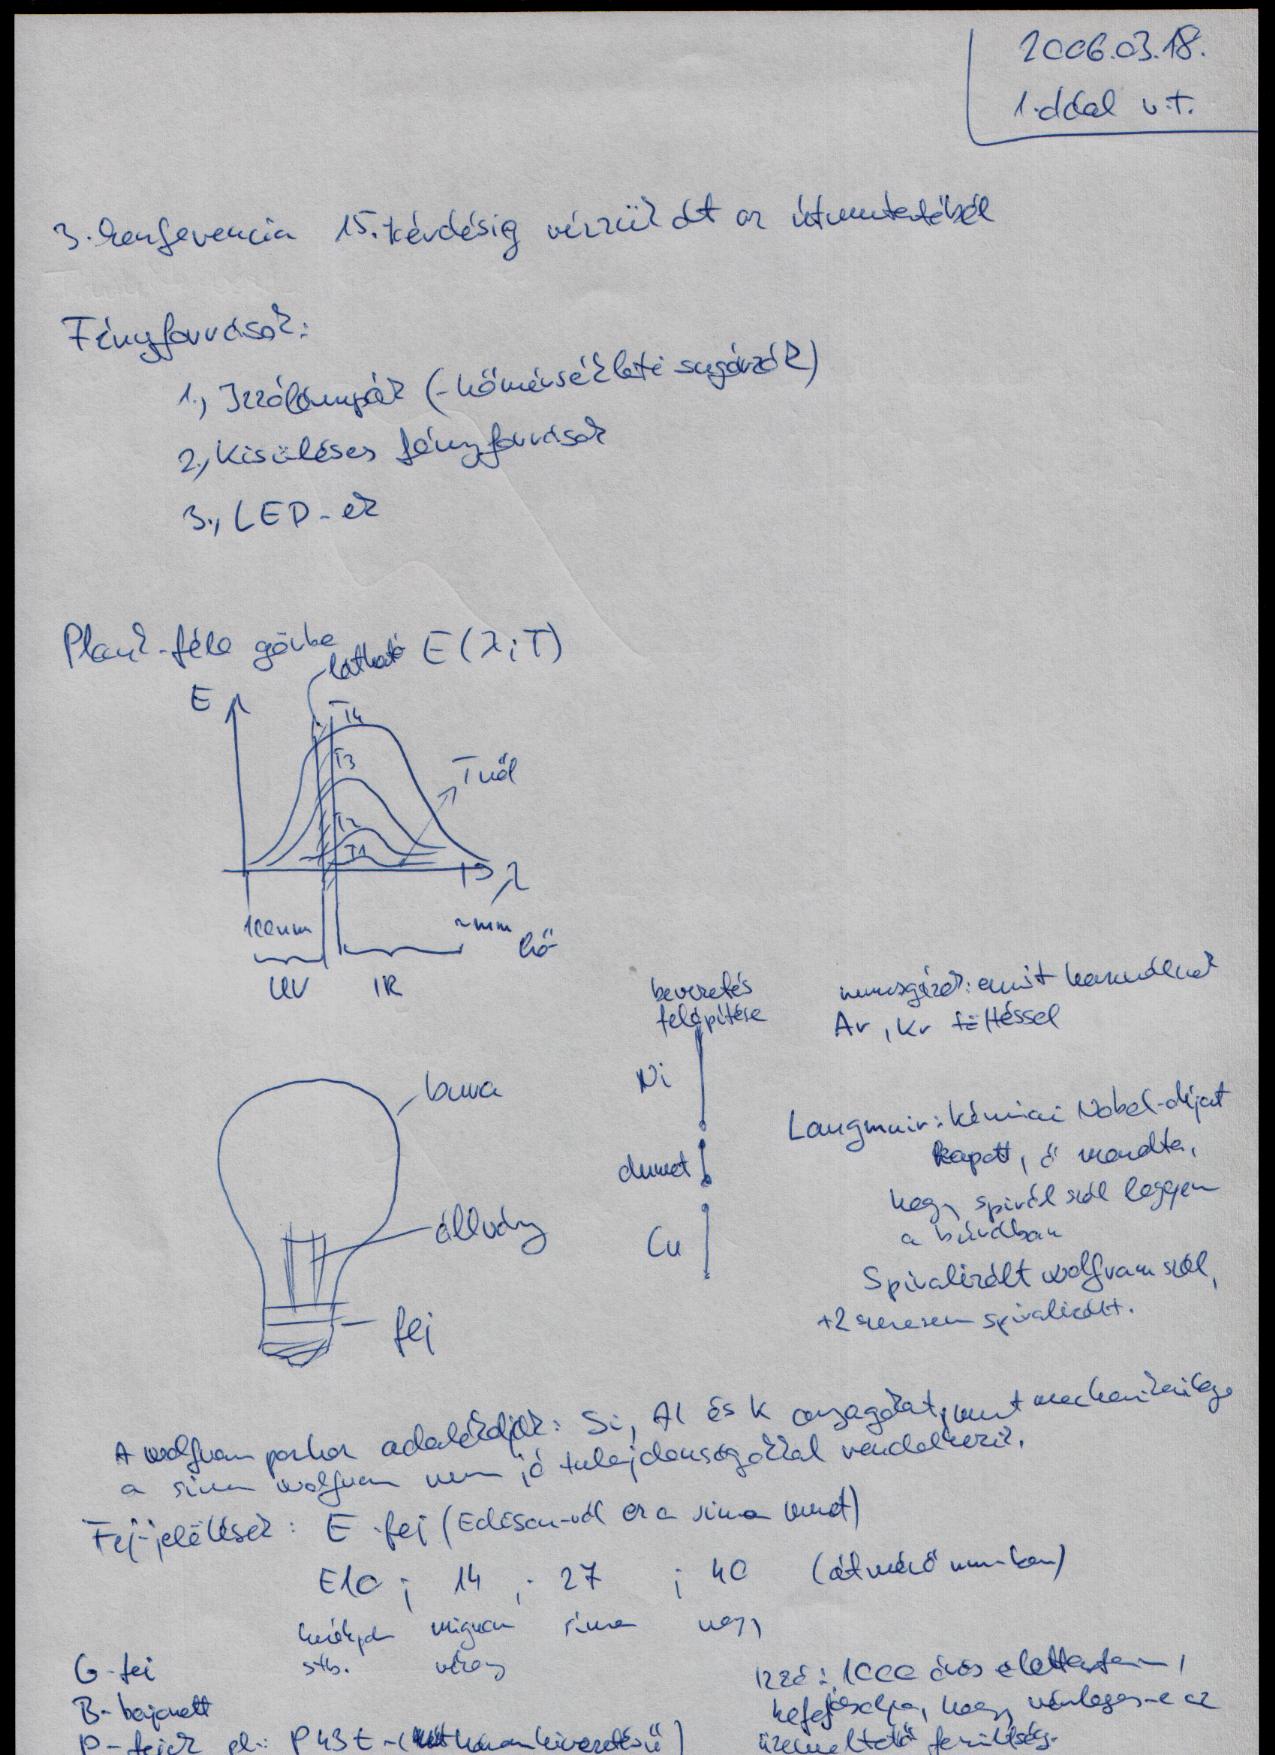 2006.03.18.
1.oldal v.t.
3. konferencia 15. kérdésig vesszük át az útmutatóból
Fényforrások:
1., Izzólámpák (-hőmérsékleti sugárzók)
2., Kisüléses fényforrások
3., LED-ek
Planck-féle görbe E(λ;T)
látható
E
T4
T3
T2
T1
T nől
λ
100nm
~mm
hő
UV
IR
bevezetés
felépítése
Ni
dumet
Cu
nemesgázok: emit használnak
Ar, Kr töltéssel
Langmuir: kémiai Nobel-díjat
kapott, ő mondta,
hogy spirál szál legyen
a búrában
Spiralizált wolfram szál,
+2 szeresen spiralizált.
bura
állvány
fej
A wolfram porhoz adalékolják: Si, Al és K anyagokat, mert mechanikailag
a sima wolfram nem jó tulajdonságokkal rendelkezik.
Fej-jelölések: E-fej (Edison-ról ez a sima menet)
E10 ; 14 ; 27 ; 40 (átmérő mm-ben)
mignon sima nagy
stb. vékony
G-fej
B-bajonett
P-fejek pl.: P43t-
izzó: 1000 órás élettartam,
hogy névleges-e az
üzemeltető feszültség.